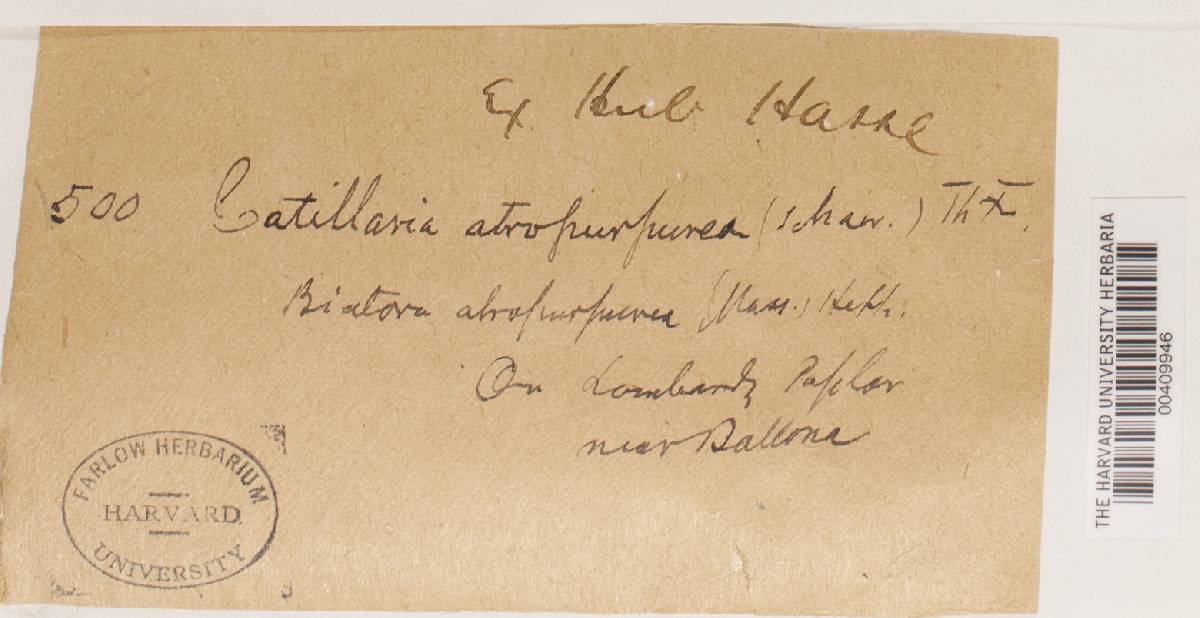 Ex Herb Hasse
500 Catillaria atropurpurea (Schaer.) Th.
Biatora atropurpurea (Mass.) Hepp.
On Lombardy Poplar
near Ballona
FARLOW HERBARIUM
HARVARD
UNIVERSITY
THE HARVARD UNIVERSITY HERBARIA
00409946